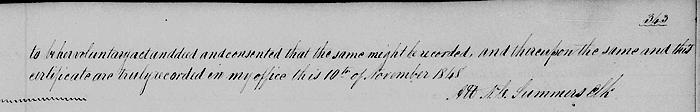 343
to be her voluntary act and deed and consented that the same might be recorded, and thereupon the same and this
certificate are truly recorded in my office this 10th of November 1848
Summers Clk